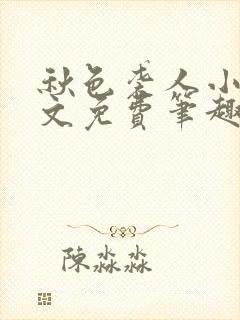 秋色老人小
文免費筆趣
陳淼淼